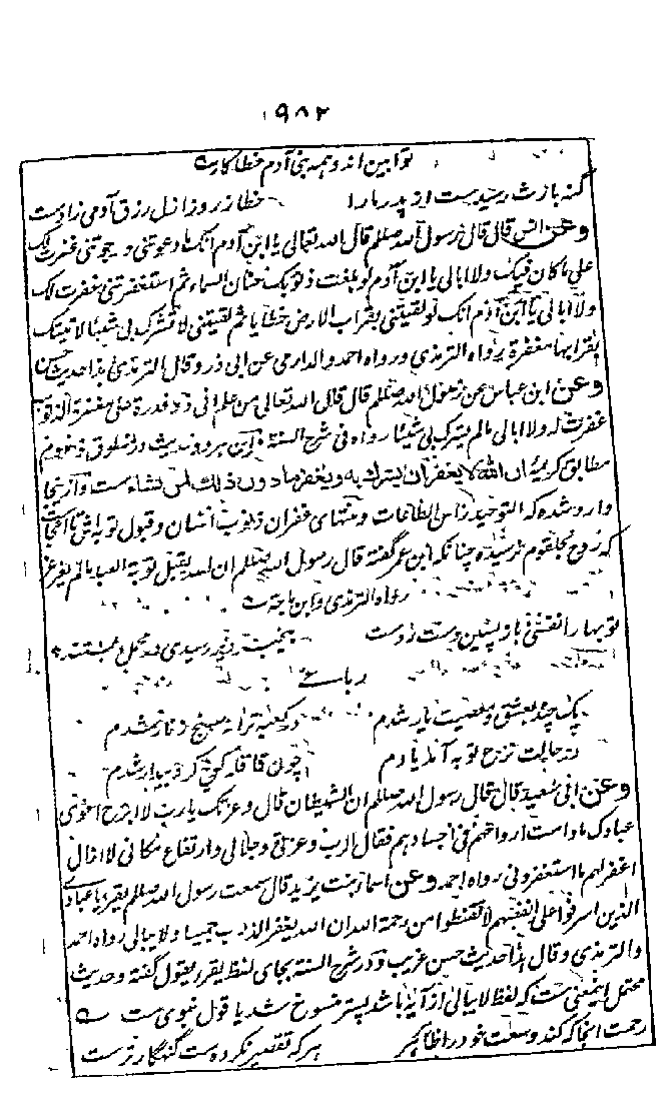 ۱۹۸۲
توابین اند و همه بنی آدم خطا کارست
گنه بارث رسیدست از پدر ما را خطا ز روز ازل رزق آدمی زادست
وعن انس قال قال رسول الله صلعم قال الله تعالی یا ابن آدم انک ما دعوتنی و رجوتنی غفرت لک
علی ما کان فیک ولا ابالی یا ابن آدم لو بلغت ذنوبک عنان السماء ثم استغفرتنی غفرت لک
ولا ابالی یا ابن آدم انک لو لقیتنی بقراب الارض خطایا ثم لقیتنی لا تشرک بی شیئا لاتیتک
بقرابها مغفرة رواه الترمذی ورواه احمد والدارمی عن ابی ذر وقال الترمذی هذا حدیث حسن
وعن ابن عباس عن رسول الله صلعم قال قال الله تعالی من علم انی ذو قدرة علی مغفرة الذنوب
غفرت له ولا ابالی مالم یشرک بی شیئا رواه فی شرح السنة این هر دو حدیث در منطوق و مفهوم
مطابق کریمهٔ ان الله لا یغفر ان یشرک به ویغفر ما دون ذلک لمن یشاء ست و از ینجا
وارد شده که التوحید راس الطاعات و منتهای غفران ذنوب انسان و قبول توبه اش تا آنجاست
که روح بحلقوم نرسیده چنانکه ابن عمر گفته قال رسول الله صلعم ان الله یقبل توبة العبد مالم یغرغر
رواه الترمذی وابن ماجة ست
توبها را نفسی باز پسین دست زدست بیخبر دیر رسیدی در محمل بستند
رباعی
یک چند بعشق و معصیت یار شدم در کعبه ترا بسبح و زنار شدم
در حالت نزع توبه آمد یادم چون قافله کوچ کرد بیدار شدم
وعن ابی سعید قال قال رسول الله صلعم ان الشیطان قال وعزتک یا رب لا ابرح اغوی
عبادک ما دامت ارواحهم فی اجسادهم فقال الرب وعزتی وجلالی وارتفاع مکانی لا ازال
اغفر لهم ما استغفرونی رواه احمد وعن اسماء بنت یزید قال سمعت رسول الله صلعم یقرء یا عبادی
الذین اسرفوا علی انفسهم لا تقنطوا من رحمة الله ان الله یغفر الذنوب جمیعا ولا یبالی رواه احمد
والترمذی وقال هذا حدیث حسن غریب و در شرح السنة بجای لفظ یقرء یقول گفته و حدیث
محتمل اینمعنی ست که لفظ لا یبالی از آیه باشد پستر منسوخ شد یا قول نبوی ست
رحمت انجا که کند وسعت خود را ظاهر هر که تقصیر نکرده ست گنهگار ترست